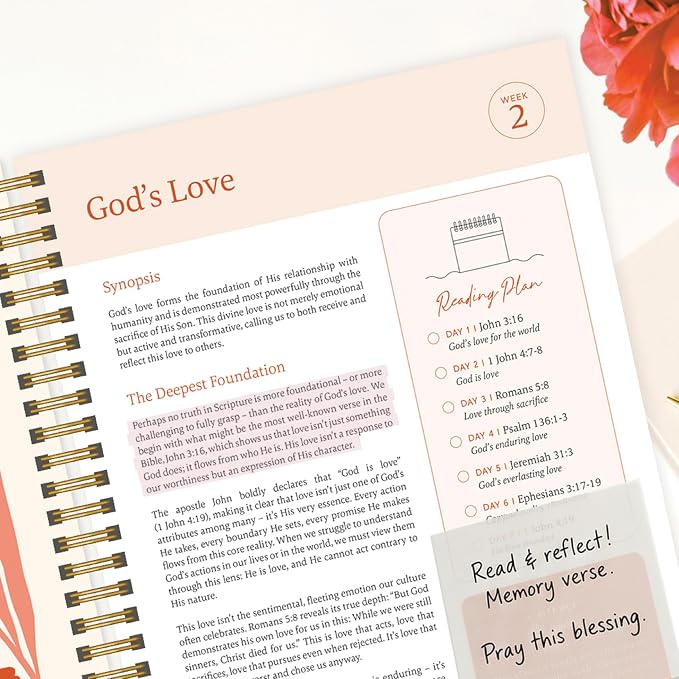 WEEK
2
God's Love
Synopsis
God's love forms the foundation of His relationship with
humanity and is demonstrated most powerfully through the
sacrifice of His Son. This divine love is not merely emotional
but active and transformative, calling us to both receive and
reflect this love to others.
The Deepest Foundation
Perhaps no truth in Scripture is more foundational – or more
challenging to fully grasp – than the reality of God's love. We
begin with what might be the most well-known verse in the
Bible, John 3:16, which shows us that love isn't just something
God does; it flows from who He is. His love isn't a response to
our worthiness but an expression of His character.
The apostle John boldly declares that "God is love"
(1 John 4:19), making it clear that love isn't just one of God's
attributes among many – it's His very essence. Every action
He takes, every boundary He sets, every promise He makes
flows from this core reality. When we struggle to understand
God's actions in our lives or in the world, we must view them
through this lens: He is love, and He cannot act contrary to
His nature.
This love isn't the sentimental, fleeting emotion our culture
often celebrates. Romans 5:8 reveals its true depth: "But God
demonstrates his own love for us in this: While we were still
sinners, Christ died for us." This is love that acts, love that
sacrifices, love that pursues even when rejected. It's love that
worst and chose us anyway.
enduring – it's
Reading Plan
DAY 1 | John 3:16
God's love for the world
DAY 2 | 1 John 4:7-8
God is love
DAY 3 | Romans 5:8
Love through sacrifice
DAY 4 | Psalm 136:1-3
God's enduring love
DAY 5 | Jeremiah 31:3
God's everlasting love
DAY 6 | Ephesians 3:17-19
DAY 7 | 1 John 4:19
Read & reflect!
Memory verse.
Pray this blessing.